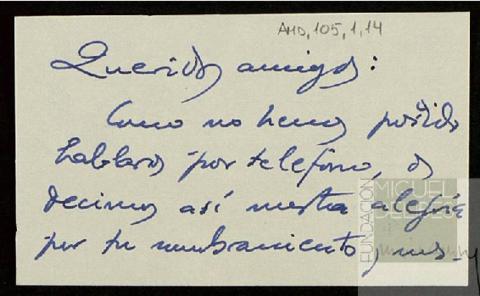 AMD, 105, 1, 14
Queridos amigos:
Como no hemos podido
hablaros por teléfono, os
decimos así nuestra alegría
por tu nombramiento, nues-
FUNDACIÓN
MIGUEL
DELIBES